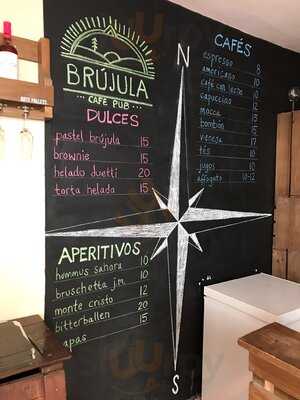 BRÚJULA
CAFE PUB
DULCES
pastel brújula 15
brownie 15
helado duetti 20
torta helada 15
APERITIVOS
hummus sahara 10
bruschetta j.m. 10
monte cristo 12
bitterballen 20
tapas 15
N
S
CAFÉS
espresso 8
americano 10
café con leche 10
capuccino 12
mocca 13
bombón 15
venesa 17
tés 10
jugos 10
affogato 10-12